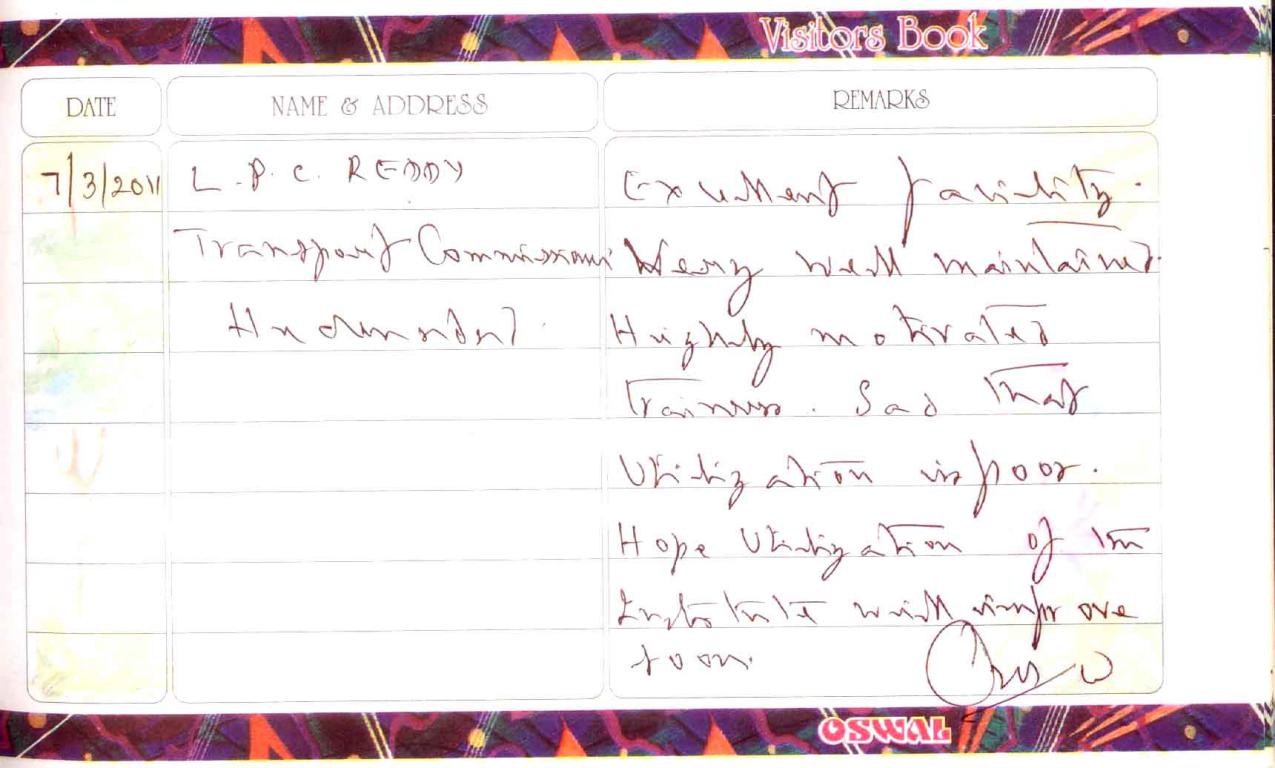 Visitors Book
DATE
NAME & ADDRESS
REMARKS
7/3/2011
L.P.C. REDDY
Transport Commissioner
Hyderabad.
Excellent facility.
Very well maintained.
Highly motivated
Trainers. Sad that
Utilization is poor.
Hope Utilization of the
Institute will improve
soon.
OSWAL